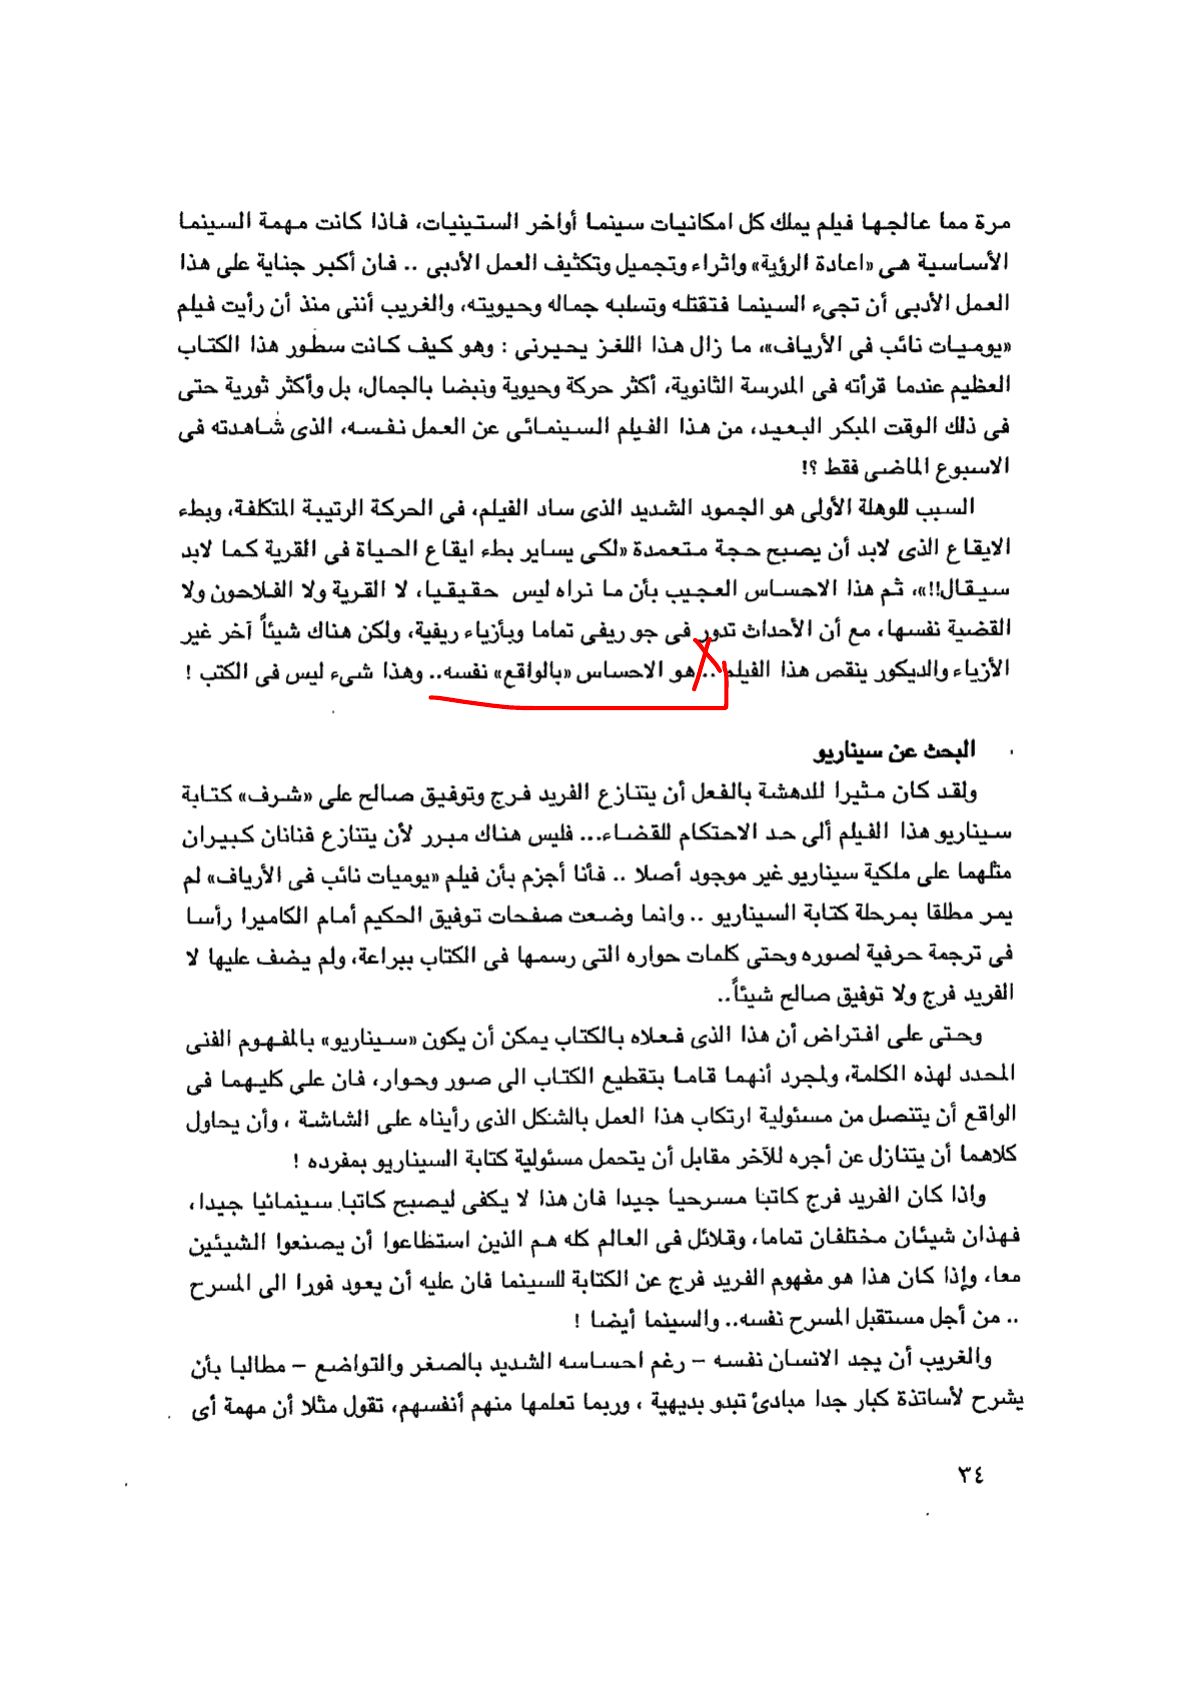 مرة مما عالجها فيلم يملك كل امكانيات سينما أواخر الستينيات، فاذا كانت مهمة السينما
الأساسية هى «اعادة الرؤية» واثراء وتجميل وتكثيف العمل الأدبى .. فان أكبر جناية على هذا
العمل الأدبى أن تجىء السينما فتقتله وتسلبه جماله وحيويته، والغريب أننى منذ أن رأيت فيلم
«يوميات نائب فى الأرياف»، ما زال هذا اللغز يحيرنى : وهو كيف كانت سطور هذا الكتاب
العظيم عندما قرأته فى المدرسة الثانوية، أكثر حركة وحيوية ونبضا بالجمال، بل وأكثر ثورية حتى
فى ذلك الوقت المبكر البعيد، من هذا الفيلم السينمائى عن العمل نفسه، الذى شاهدته فى
الاسبوع الماضى فقط ؟!
السبب للوهلة الأولى هو الجمود الشديد الذى ساد الفيلم، فى الحركة الرتيبة المتكلفة، وبطء
الايقاع الذى لابد أن يصبح حجة متعمدة «لكى يساير بطء ايقاع الحياة فى القرية كما لابد
سيقال!!»، ثم هذا الاحساس العجيب بأن ما نراه ليس حقيقيا، لا القرية ولا الفلاحون ولا
القضية نفسها، مع أن الأحداث تدور فى جو ريفى تماما وبأزياء ريفية، ولكن هناك شيئاً آخر غير
الأزياء والديكور ينقص هذا الفيلم .. هو الاحساس «بالواقع» نفسه.. وهذا شىء ليس فى الكتب !
البحث عن سيناريو
ولقد كان مثيرا للدهشة بالفعل أن يتنازع الفريد فرج وتوفيق صالح على «شرف» كتابة
سيناريو هذا الفيلم ألى حد الاحتكام للقضاء... فليس هناك مبرر لأن يتنازع فنانان كبيران
مثلهما على ملكية سيناريو غير موجود أصلا .. فأنا أجزم بأن فيلم «يوميات نائب فى الأرياف» لم
يمر مطلقا بمرحلة كتابة السيناريو .. وانما وضعت صفحات توفيق الحكيم أمام الكاميرا رأسا
فى ترجمة حرفية لصوره وحتى كلمات حواره التى رسمها فى الكتاب ببراعة، ولم يضف عليها لا
الفريد فرج ولا توفيق صالح شيئاً..
وحتى على افتراض أن هذا الذى فعلاه بالكتاب يمكن أن يكون «سيناريو» بالمفهوم الفنى
المحدد لهذه الكلمة، ولمجرد أنهما قاما بتقطيع الكتاب الى صور وحوار، فان على كليهما فى
الواقع أن يتنصل من مسئولية ارتكاب هذا العمل بالشكل الذى رأيناه على الشاشة ، وأن يحاول
كلاهما أن يتنازل عن أجره للآخر مقابل أن يتحمل مسئولية كتابة السيناريو بمفرده !
واذا كان الفريد فرج كاتبا مسرحيا جيدا فان هذا لا يكفى ليصبح كاتبا سينمائيا جيدا،
فهذان شيئان مختلفان تماما، وقلائل فى العالم كله هم الذين استطاعوا أن يصنعوا الشيئين
معا، وإذا كان هذا هو مفهوم الفريد فرج عن الكتابة للسينما فان عليه أن يعود فورا الى المسرح
.. من أجل مستقبل المسرح نفسه.. والسينما أيضا !
والغريب أن يجد الانسان نفسه – رغم احساسه الشديد بالصغر والتواضع – مطالبا بأن
يشرح لأساتذة كبار جدا مبادئ تبدو بديهية ، وربما تعلمها منهم أنفسهم، تقول مثلا أن مهمة أى
٣٤